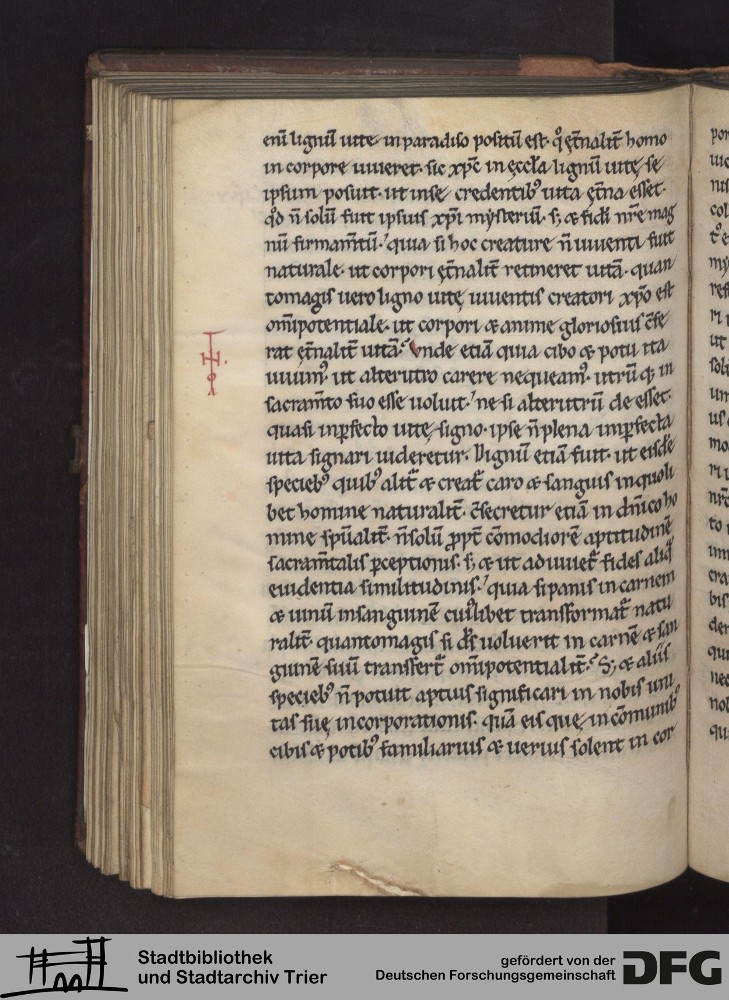 enī lignū uitę in paradiso positū est. q̊ ęt̄nalit̄ homo
in corpore uiueret. sic xp̄c in ęccl̄a lignū uitę se
ipsum posuit. ut in se credentib᷒ uita ęt̄na esset.
qd̄ n̄ solū fuit ipsius xp̄i mysteriū. s; & fidei nr̄e mag
nū firmam̄tū. quia si hoc creaturę n̄ uiuenti fuit
naturale. ut corpori ęt̄nalit̄ retineret uitā. quan
tomagis uero ligno uitę uiuentis creatori xp̄o est
om̄ipotentiale. ut corpori & animę gloriosius c̄fe
rat ęt̄nalit̄ uitā. Vnde etiā quia cibo & potu ita
uiuim᷒. ut alterutro carere nequeam᷒. utrūq; in
sacram̄to suo esse uoluit. ne si alterutrū de esset.
quasi inꝑfecto uitę signo. ipse n̄ plena inꝑfecta
uita signari uideretur. Dignū etiā fuit. ut eisdē
specieb᷒ quib᷒ alit̄ & creat̄ caro & sanguis in quoli
bet homine naturalit̄. c̄secretur etiā in dn̄ico ho
mine sp̄ualit̄. n̄ solū ꝓpt̄ cōmodiorē aptitudinē
sacram̄talis ꝑceptionis. s; & ut adiuuet̄ fides aliq̄
euidentia similitudinis. quia si panis in carnem
& uinū in sanguinē cui᷒libet transformat̄ natu
ralit̄. quantomagis si dn̄s uoluerit in carnē & san
guinē suū transfert̄ om̄ipotentialit̄. S; & aliis
specieb᷒ n̄ potuit aptius significari in nobis uni
tas suę incorporationis. quā eis quę in cōmunib᷒
cibis & potib᷒ familiarius & uerius solent in cor
Stadtbibliothek
und Stadtarchiv Trier
gefördert von der
Deutschen Forschungsgemeinschaft
DFG